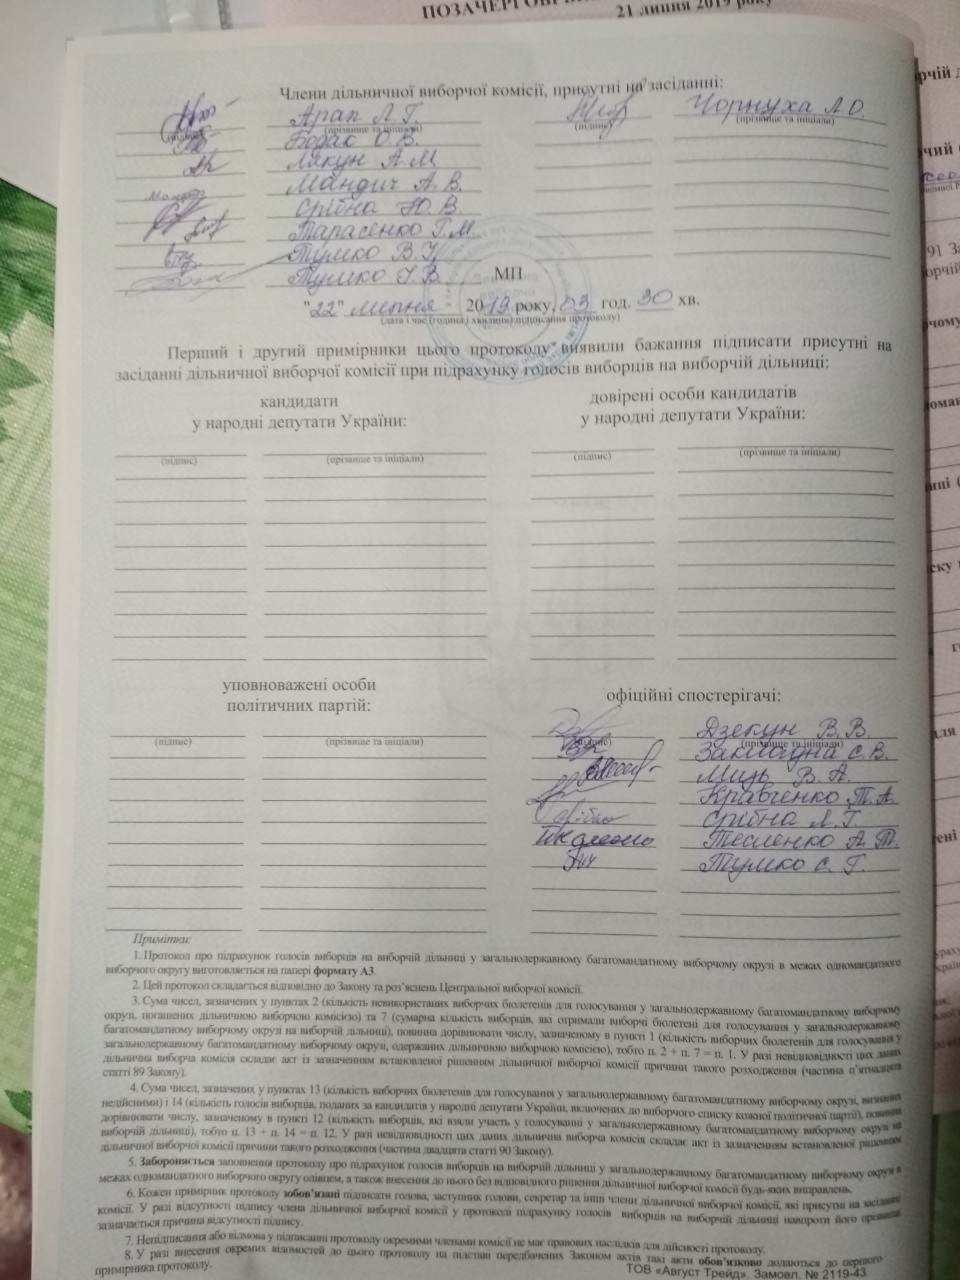 21 липня 2019 року
Члени дільничної виборчої комісії, присутні на засіданні:
Арап Л. Г. Чорнуха Л. О.
(прізвище та ініціали) (підпис) (прізвище та ініціали)
Бодак О. В.
Лякун А. М.
Мандич А. В.
Срібна Ю. В.
Тарасенко Г. М.
Тумко В. І.
Тумко Г. В. МП
"22" липня 2019 року, 03 год. 30 хв.
(дата і час (година і хвилини) підписання протоколу)
Перший і другий примірники цього протоколу виявили бажання підписати присутні на
засіданні дільничної виборчої комісії при підрахунку голосів виборців на виборчій дільниці:
кандидати
у народні депутати України:
довірені особи кандидатів
у народні депутати України:
(підпис) (прізвище та ініціали) (підпис) (прізвище та ініціали)
уповноважені особи
політичних партій:
офіційні спостерігачі:
Дзекун В. В.
(підпис) (прізвище та ініціали) (підпис) (прізвище та ініціали)
С. В.
Мизь В. А.
Кравченко Т. А.
Срібна Л. Г.
Тесленко А. Т.
Тумко Є. Г.
Примітки:
1. Протокол про підрахунок голосів виборців на виборчій дільниці у загальнодержавному багатомандатному виборчому окрузі в межах одномандатного
виборчого округу виготовляється на папері формату А3.
2. Цей протокол складається відповідно до Закону та роз’яснень Центральної виборчої комісії.
3. Сума чисел, зазначених у пунктах 2 (кількість невикористаних виборчих бюлетенів для голосування у загальнодержавному багатомандатному виборчому
окрузі, погашених дільничною виборчою комісією) та 7 (сумарна кількість виборців, які отримали виборчі бюлетені для голосування у загальнодержавному
багатомандатному виборчому окрузі на виборчій дільниці), повинна дорівнювати числу, зазначеному в пункті 1 (кількість виборчих бюлетенів для голосування у
загальнодержавному багатомандатному виборчому окрузі, одержаних дільничною виборчою комісією), тобто п. 2 + п. 7 = п. 1. У разі невідповідності цих даних
дільнична виборча комісія складає акт із зазначенням встановленої рішенням дільничної виборчої комісії причини такого розходження (частина п’ятнадцята
статті 89 Закону).
4. Сума чисел, зазначених у пунктах 13 (кількість виборчих бюлетенів для голосування у загальнодержавному багатомандатному виборчому окрузі, визнаних
недійсними) і 14 (кількість голосів виборців, поданих за кандидатів у народні депутати України, включених до виборчого списку кожної політичної партії), повинна
дорівнювати числу, зазначеному в пункті 12 (кількість виборців, які взяли участь у голосуванні у загальнодержавному багатомандатному виборчому окрузі на
виборчій дільниці), тобто п. 13 + п. 14 = п. 12. У разі невідповідності цих даних дільнична виборча комісія складає акт із зазначенням встановленої рішенням
дільничної виборчої комісії причини такого розходження (частина двадцята статті 90 Закону).
5. Забороняється заповнення протоколу про підрахунок голосів виборців на виборчій дільниці у загальнодержавному багатомандатному виборчому окрузі в
межах одномандатного виборчого округу олівцем, а також внесення до нього без відповідного рішення дільничної виборчої комісії будь-яких виправлень.
6. Кожен примірник протоколу зобов’язані підписати голова, заступник голови, секретар та інші члени дільничної виборчої комісії, які присутні на засіданні
комісії. У разі відсутності підпису члена дільничної виборчої комісії у протоколі підрахунку голосів виборців на виборчій дільниці навпроти його прізвища
зазначається причина відсутності підпису.
7. Непідписання або відмова у підписанні протоколу окремими членами комісії не має правових наслідків для дійсності протоколу.
8. У разі внесення окремих відомостей до цього протоколу на підставі передбачених Законом актів такі акти обов’язково додаються до першого
примірника протоколу.
ТОВ «Август Трейд». Замовл. № 2119-43